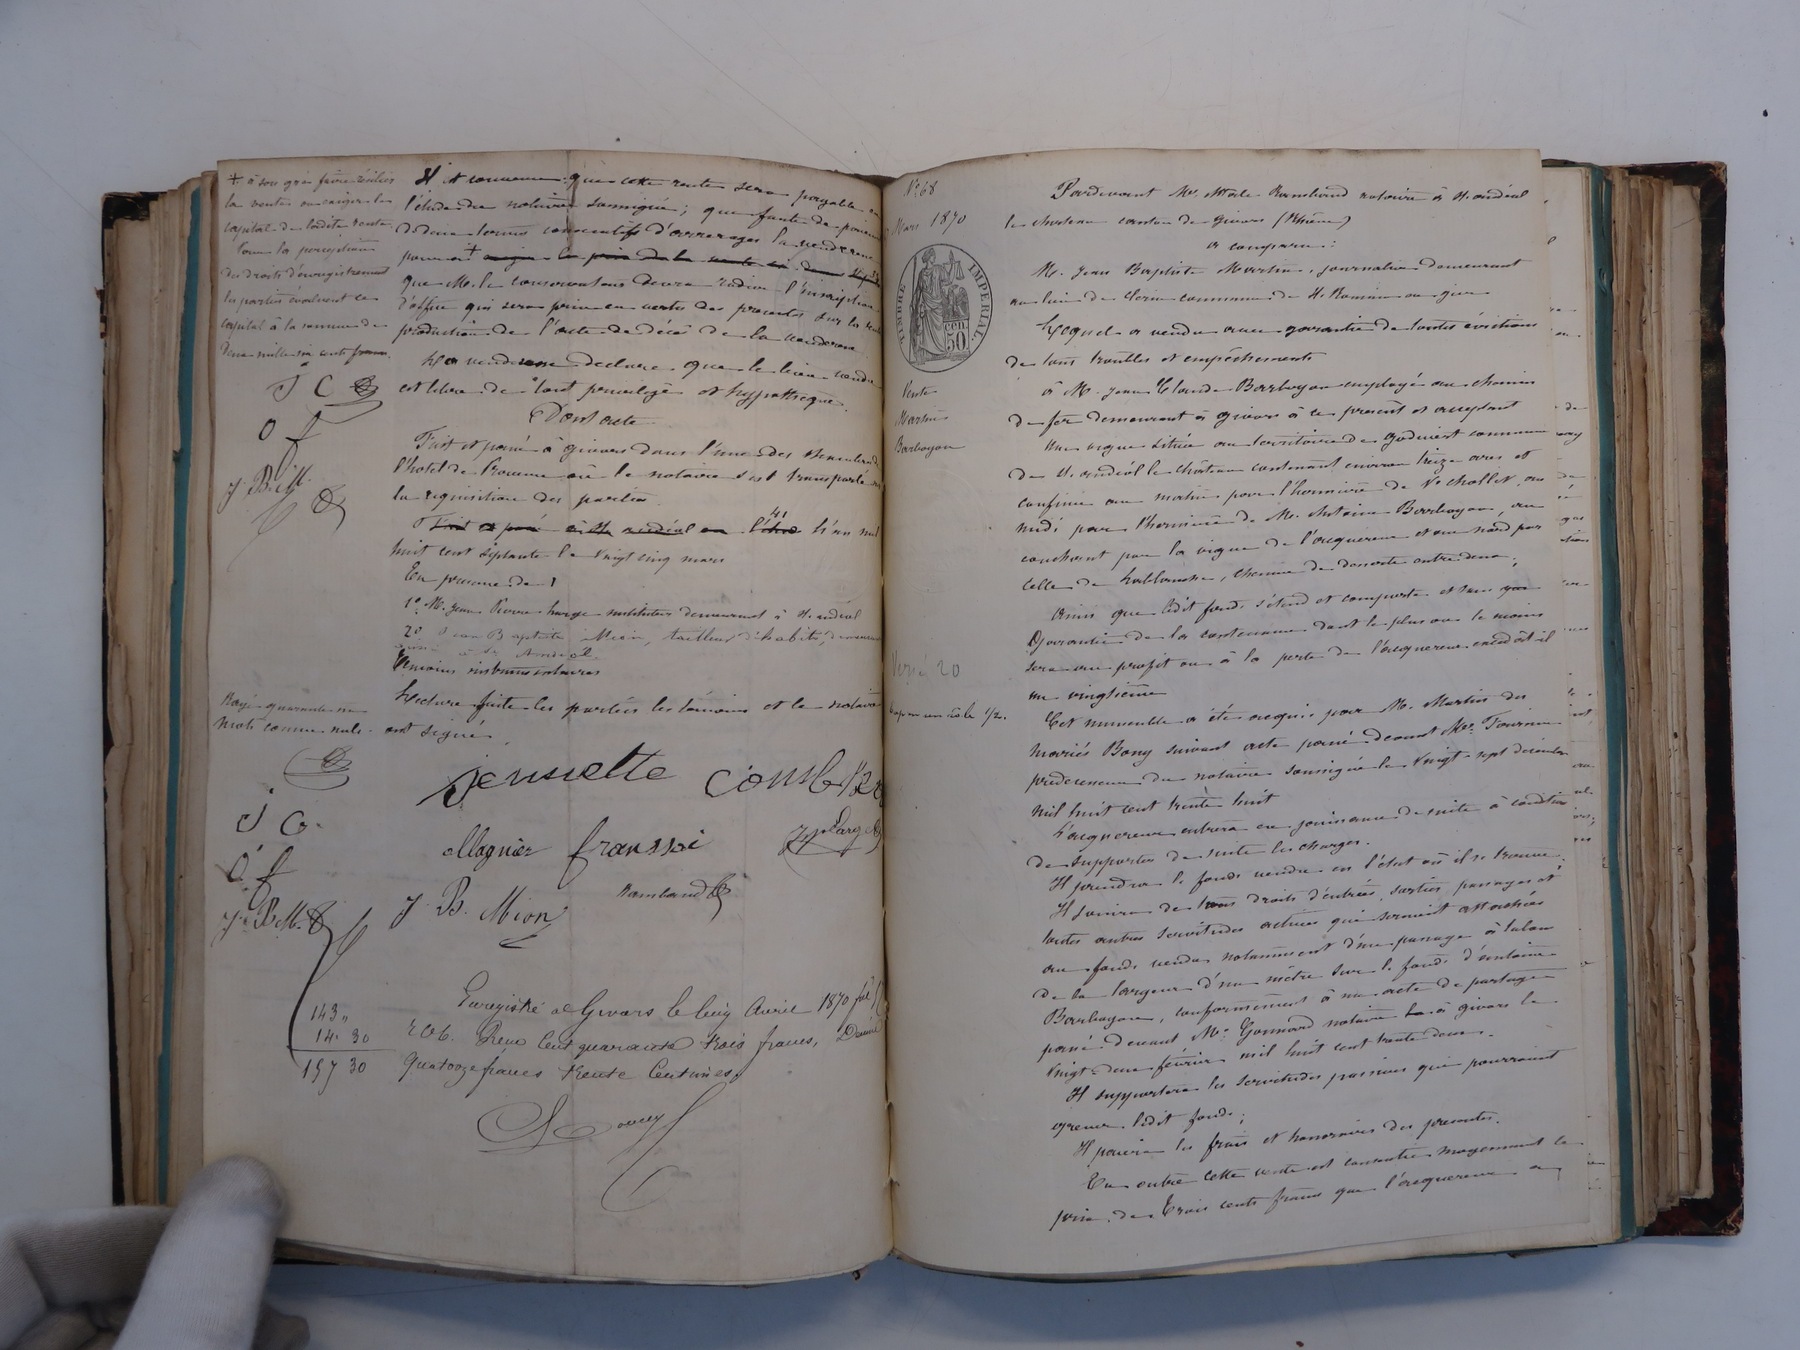 + à son gré faire résilier
la vente ou exiger le
capital de ladite rente
Pour la perception
des droits d'enregistrement
les parties évaluent ce
capital à la somme de
Deux mille six cents francs.
J C
O f
J. B. M.
Il est convenu que cette rente sera payable en
l'étude du notaire soussigné; que faute de paiement
de deux termes consécutifs d'arrérages la venderesse
pourra + exiger le prix de la vente
que M. le conservateur devra radier l'inscription
d'office qui sera prise en vertu des présentes sur la seule
production de l'acte de décès de la venderesse
La venderesse déclare que le bien vendu
est libre de tout privilège et hypothèque.
Dont acte
Fait et passé à Givors dans l'une des
l'hotel de Provence où le notaire s'est transporté sur
la réquisition des parties
Fait et passé à St Andéol en l'étude L'an mil
huit cent septante le Vingt cinq mars
En présence de
1° M. Jean Pierre Large instituteur demeurant à St Andéol
2° Jean Baptiste Mion, tailleur d'habits, demeurant
aussi à St Andéol
Témoins instrumentaires
Lecture faite les parties les témoins et le notaire
ont signé
Rayé quarante un
mots comme nuls.
J C.
O f
J. B. M.
Jenuelte Combe
Magnier franssoi
JP Large
J. B. Mion
Rambaud
Enregistré à Givors le cinq Avril 1870 fol
R 6. Reçu Cent quarante trois francs, Décime
Quatorze francs trente Centimes.
143 "
14. 30
157 30
N° 68
Mars 1870
TIMBRE IMPERIAL
50 cen.
Vente
Martin
Barboyon
Versé 20
un rôle 1/2.
Pardevant Me Rambaud notaire à St Andéol
le chateau canton de Givors (Rhône)
a comparu:
M. Jean Baptiste Martin, journalier demeurant
au lieu de commune de St Romain en gier
Lequel a vendu avec garantie de toutes évictions
de tous troubles et empêchements
à M. Jean Claude Barboyon employé au chemin
de fer demeurant à Givors à ce présent et acceptant
Une vigne située au territoire de Godivert commune
de St Andéol le Château contenant environ treize ares et
confinée au matin par l'hermière de Ve Chollet, au
midi par l'hermière de M. Antoine Barboyon, au
couchant par la vigne de l'acquéreur et au nord par
celle de Lablanche, chemin de desserte entre deux;
Ainsi que ledit fonds s'étend et comporte et sans
Garantie de la contenance dont le plus ou le moins
sera au profit ou à la perte de l'acquéreur excédât-il
un vingtième
Cet immeuble a été acquis par M. Martin des
mariés Bony suivant acte passé devant Me Fournier
prédécesseur du notaire soussigné le Vingt-sept décembre
mil huit cent trente huit
L'acquéreur entrera en jouissance de suite à condition
de supporter de suite les charges.
Il prendra le fonds vendu en l'état où il se trouve
Il jouira de tous droits d'entrées, sorties passages et
toutes autres servitudes actives qui seraient attachées
au fonds vendu notamment d'un passage à talon
de la largeur d'un mètre sur le fonds d'Antoine
Barboyon, conformément à un acte de partage
passé devant Me Gonnard notaire à Givors le
Vingt-deux février mil huit cent trente deux.
Il supportera les servitudes passives qui pourraient
grever ledit fonds;
Il paiera les frais et honoraires des présentes.
En outre cette vente est consentie moyennant le
prix de Trois cents francs que l'acquéreur a